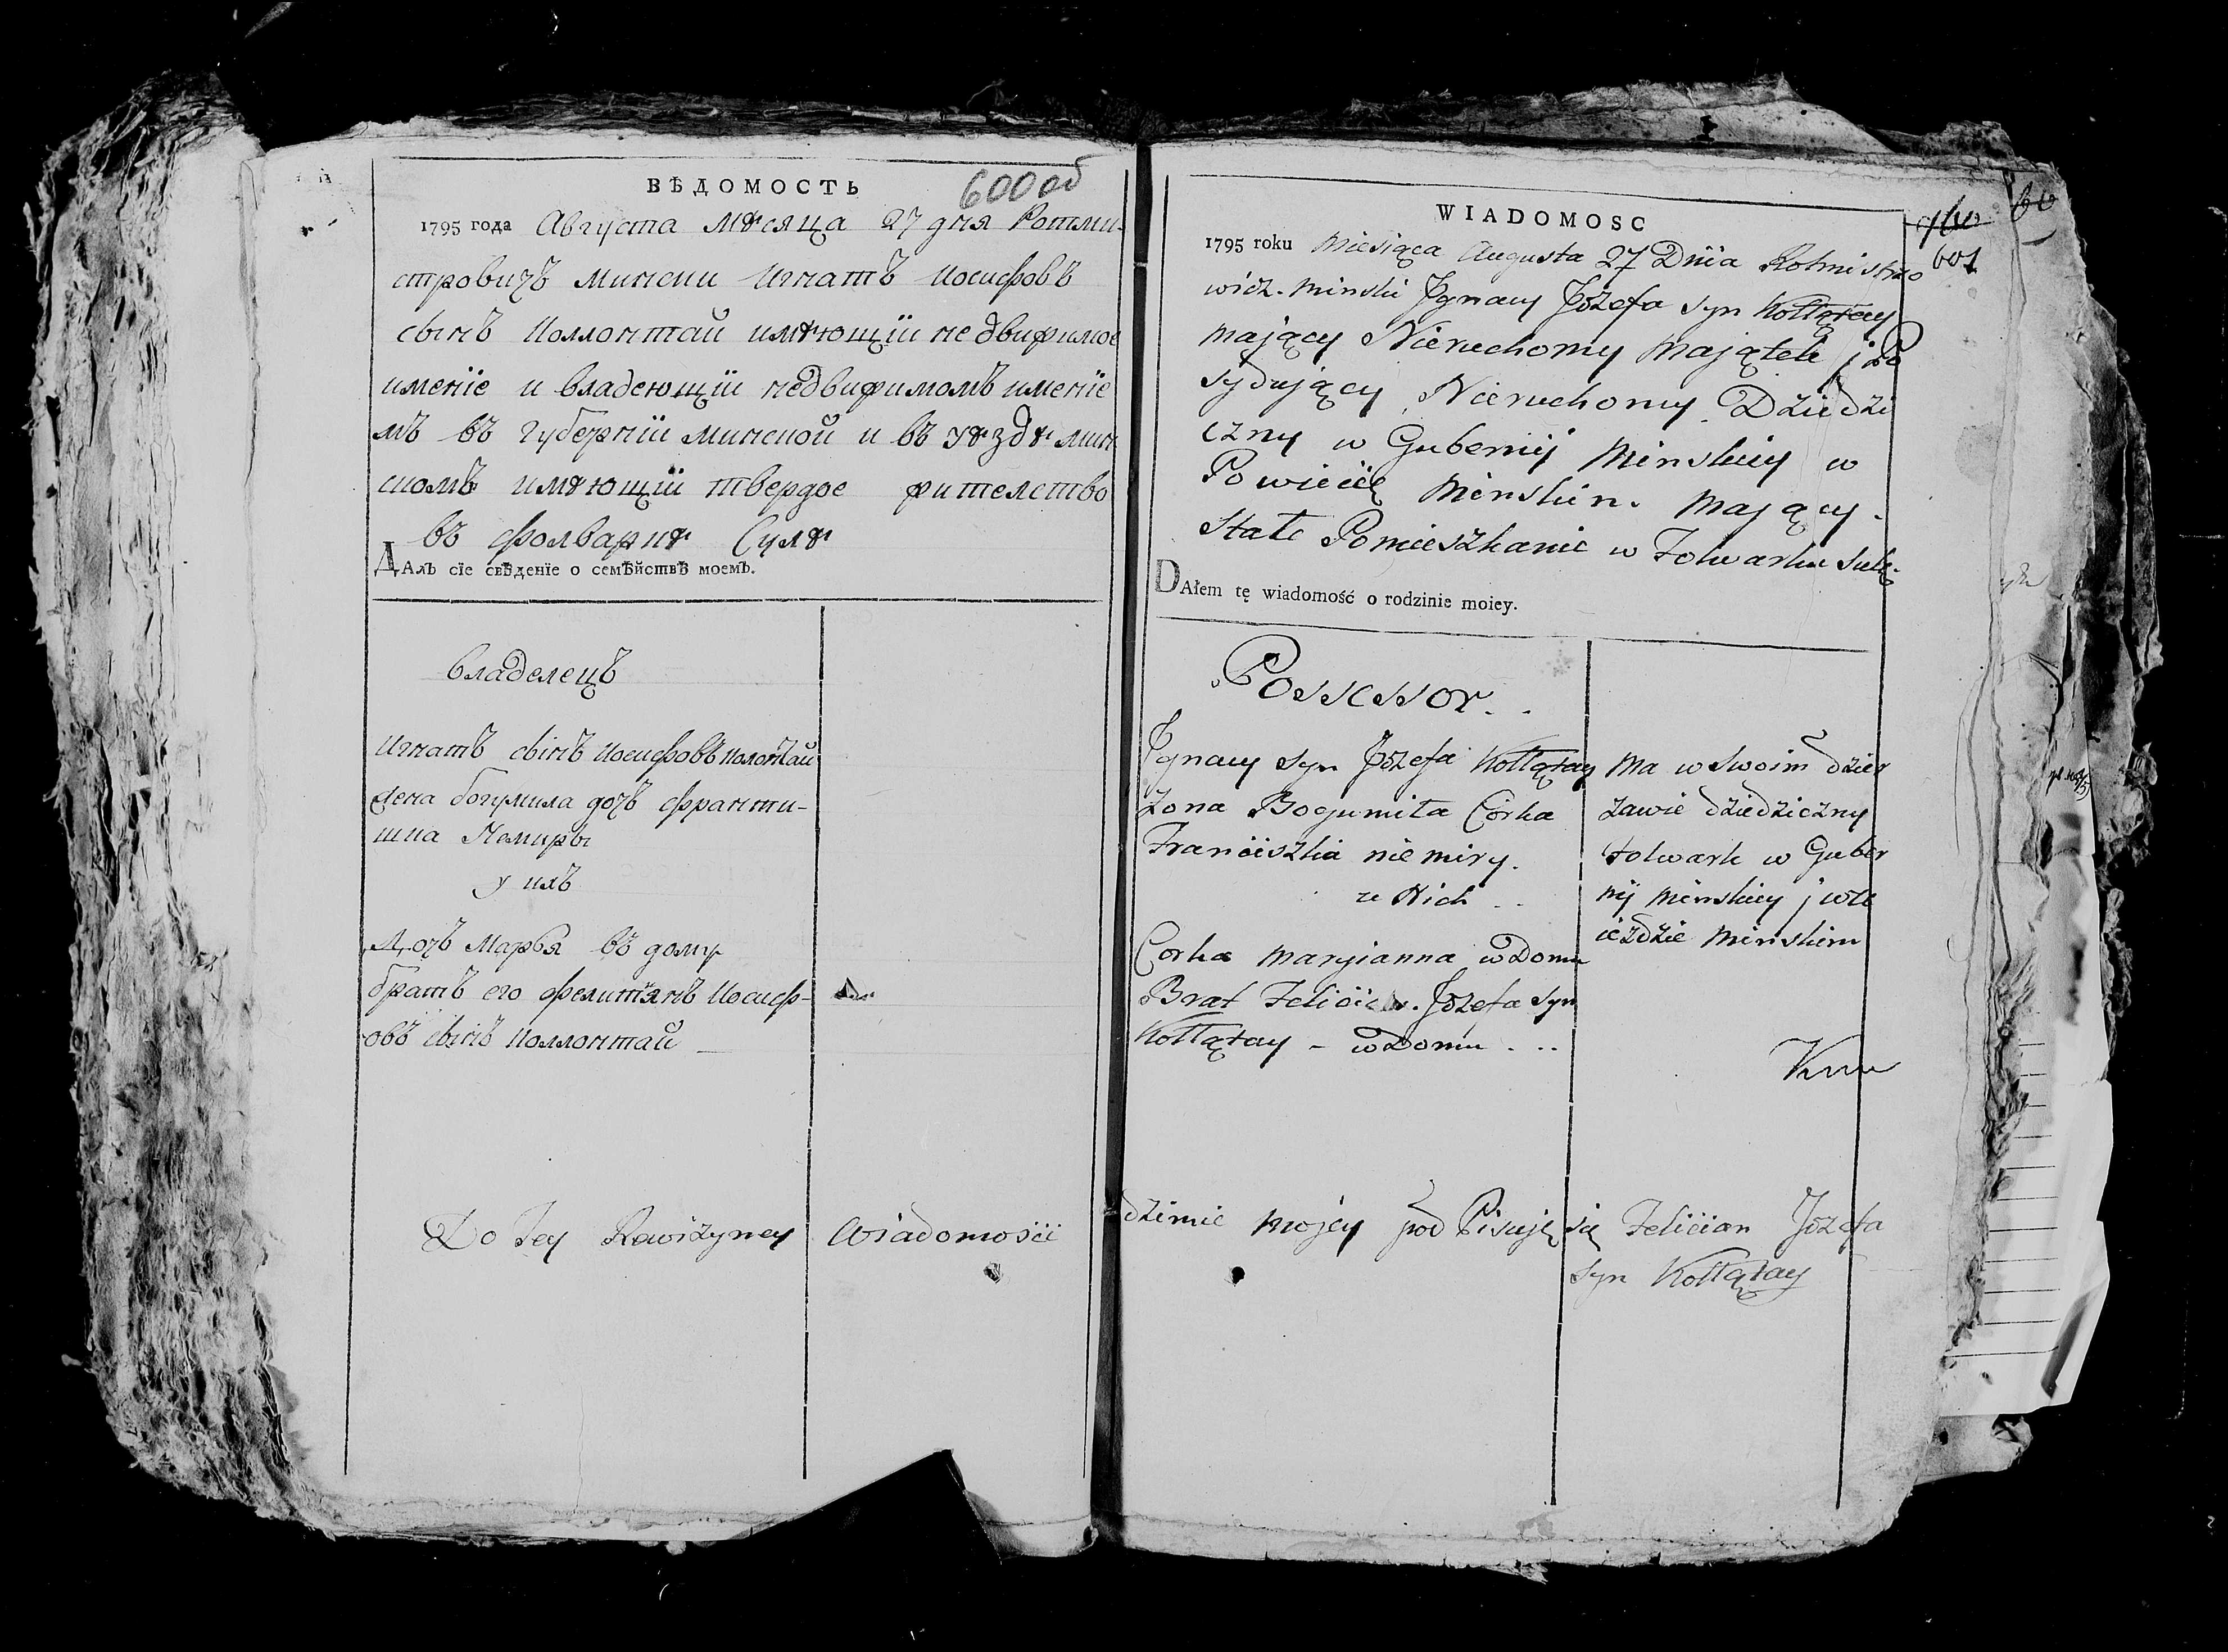 ВѢДОМОСТЬ
600 об
1795 года Августа мѣсяца 27 дня Ротми-
стровичъ Мински Игнатъ Иосифовъ
сынъ Коллонтай имѣющiи недвижимое
именiе и владеющiи недвижимомъ именiе
мъ въ Губернiи Минской и въ уѣздѣ Мин
скомъ имѣющiи твердое жителство
въ фолваркѣ Сулѣ
ДАлЪ сiе свѣденiе о семѣйствѣ моемъ.
Владелецъ
Игнатъ сынъ Иосифовъ Колонтай
Жена Богумила дочь Франти-
шка Немиры
у ихъ
Дочъ Марья въ дому
братъ его Фелитiянъ Иосиф-
овъ сынъ Коллонтай
Do Tey Rewizyney Wiadomośći
WIADOMOSC
601
1795 roku Miesiąca Augusta 27 Dnia Rotmistrzo
wicz. Minski Jgnacy Józefa syn Kołłątay
mający Nieruchomy Majątek j Po
sydujący Nieruchomy Dziedzi
czny w Gubernij Minskiey w
Powiecie Minskim. Mający.
Stałe Pomieszkanie w Folwarku Sule.
DAłem tę wiadomość o rodzinie moiey.
Possessor. .
Jgnacy syn Józefa Kołłątay
Zona Bogumiła Córka
Franciszka niemiry.
z Nich . .
Corka Maryianna w Domu
Brat Felician. Józefa syn
Kołłątay – w Domu . ..
Ma w swoim dzier
zawie dziedziczny
folwark w Guber
nij Minskiey j w Ue
ieździe Minskim
dzinie Mojey pod Pisuję się Felician Józefa
syn Kołłątay